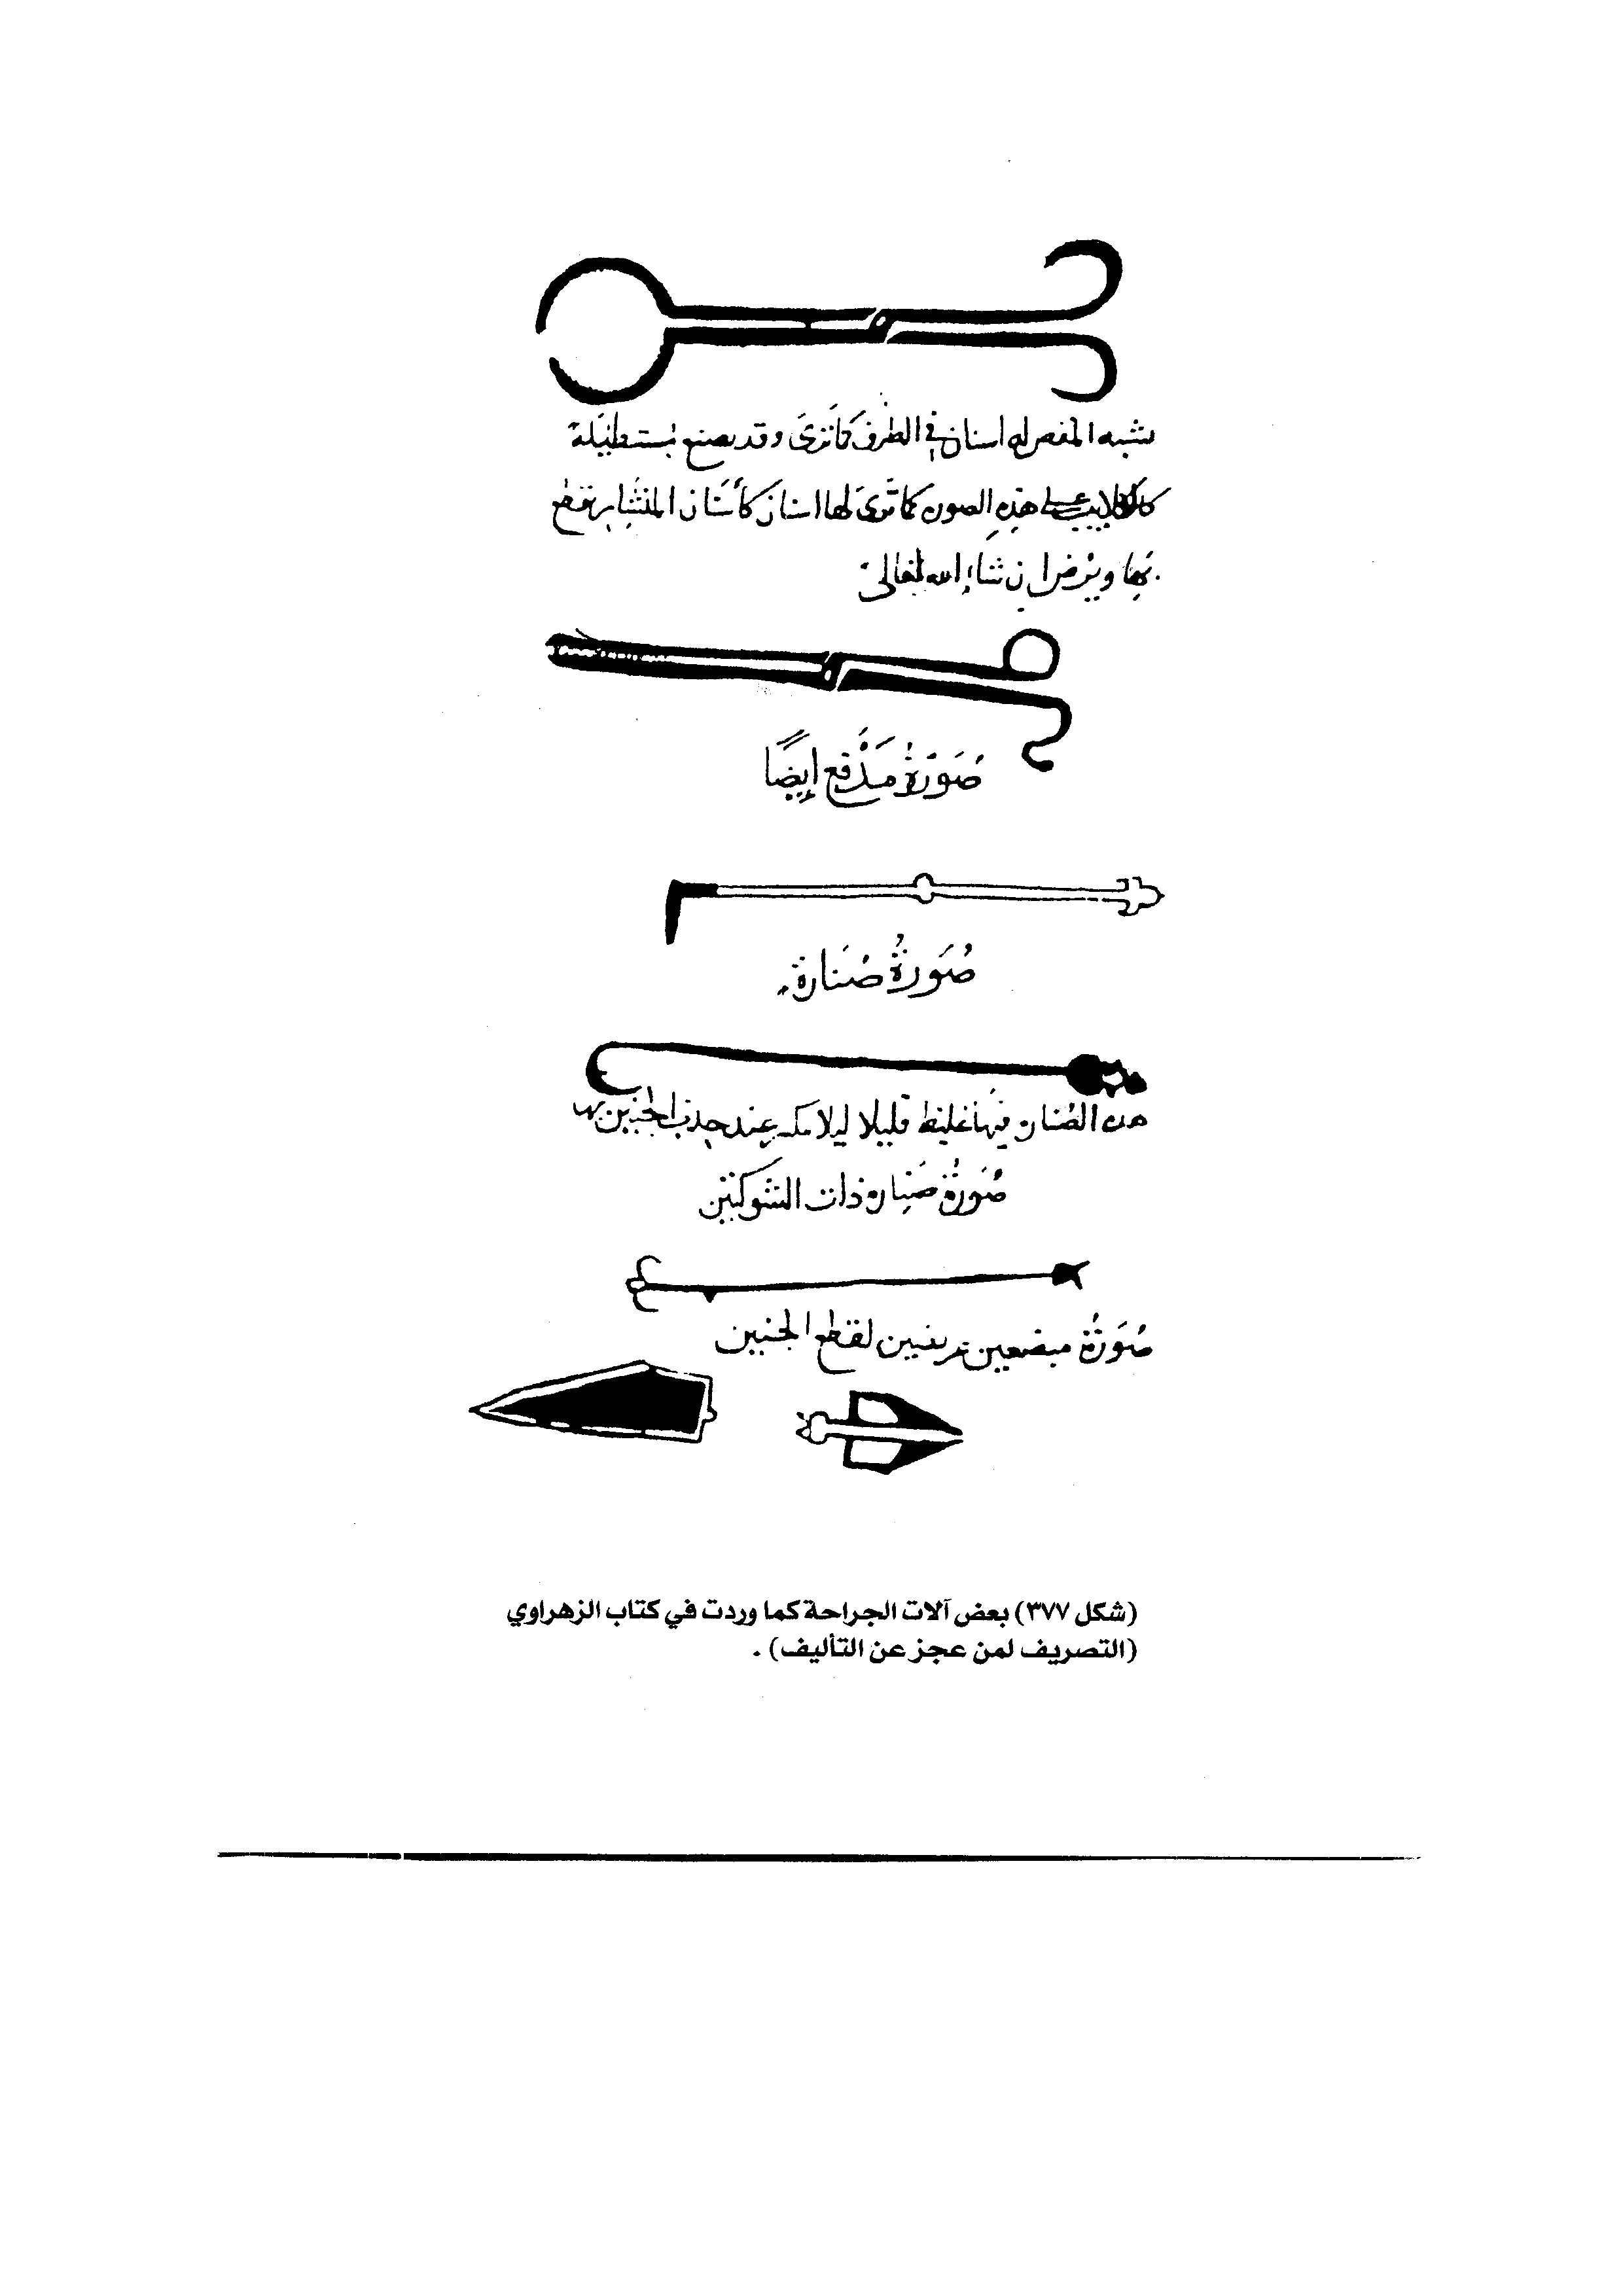 يشبه المقص له اسنان في الطرف كما ترى وقد يصنع مستطيلة
كالكلاليب على هذه الصورة كما ترى لها اسنان كأسنان المنشار يقطع
بها ويرض ان شاء الله تعالى
صُورَةُ مَدْفع ايضًا
صُورَةُ صنارة
هذه الصنارة فيها غلظ قليلا ليلا عند جذب الجنين بها
صُورَةُ صنارة ذات الشوكتين
صُورَةُ مبضعين عريضين لقطع الجنين
(شكل ٣٧٧) بعض آلات الجراحة كما وردت في كتاب الزهراوي
(التصريف لمن عجز عن التأليف) .